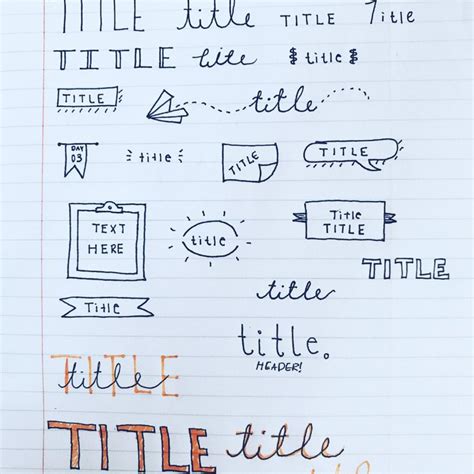 TITLE title TITLE Title
TITLE title $ title $
TITLE title
DAY 03 title TITLE TITLE
TEXT HERE title Title TITLE
TITLE
Title title
title.
HEADER!
TITLE title
TITLE title